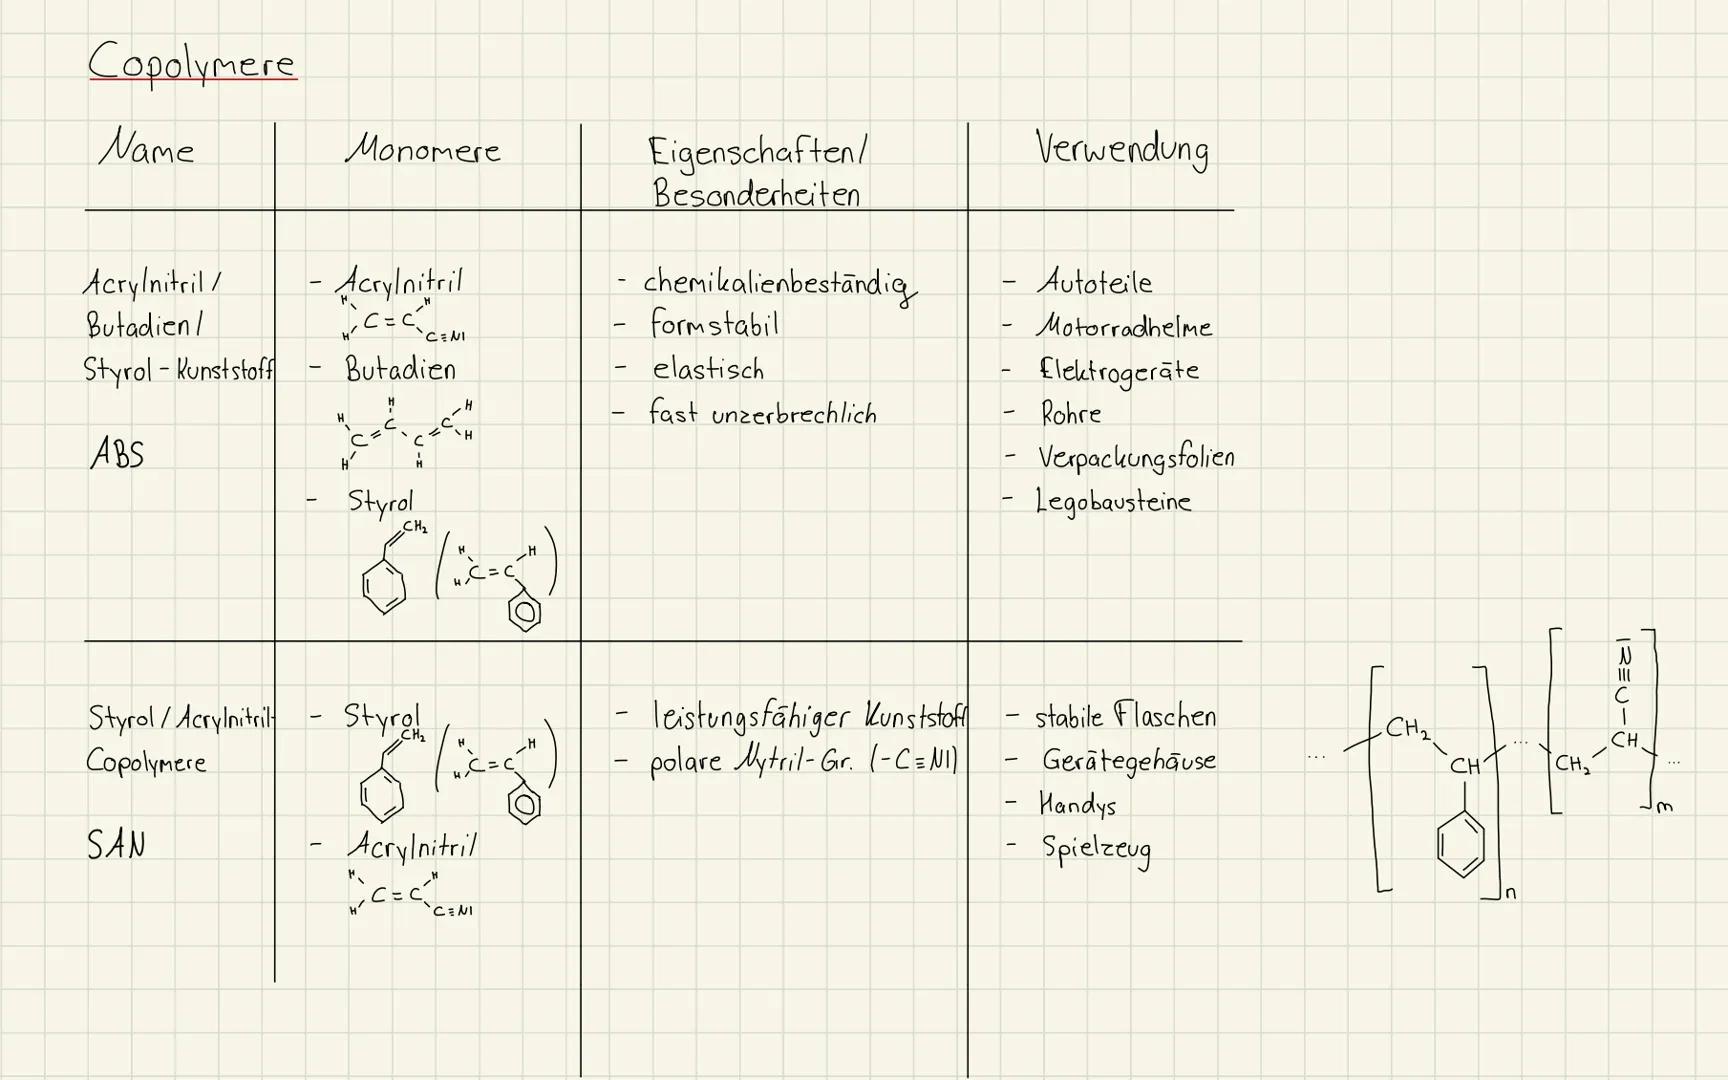 Copolymere
Name
Monomere
Eigenschaften/
Besonderheiten
Verwendung
Acrylnitril /
Butadien /
Styrol - Kunststoff
ABS
- Acrylnitril
H H
C = C
H C≡NI
- Butadien
H H H
C = C - C = C
H H H
- Styrol
CH₂
H H
C = C
H
- chemikalienbeständig
- formstabil
- elastisch
- fast unzerbrechlich
- Autoteile
- Motorradhelme
- Elektrogeräte
- Rohre
- Verpackungsfolien
- Legobausteine
Styrol / Acrylnitril-
Copolymere
SAN
- Styrol
CH₂
H H
C = C
H
- Acrylnitril
H H
C = C
H C≡NI
- leistungsfähiger Kunststoff
- polare Nytril-Gr. (-C≡NI)
- stabile Flaschen
- Gerätegehäuse
- Handys
- Spielzeug
... CH₂
CH
n
...
CH₂
CH
C
≡
N
m
...